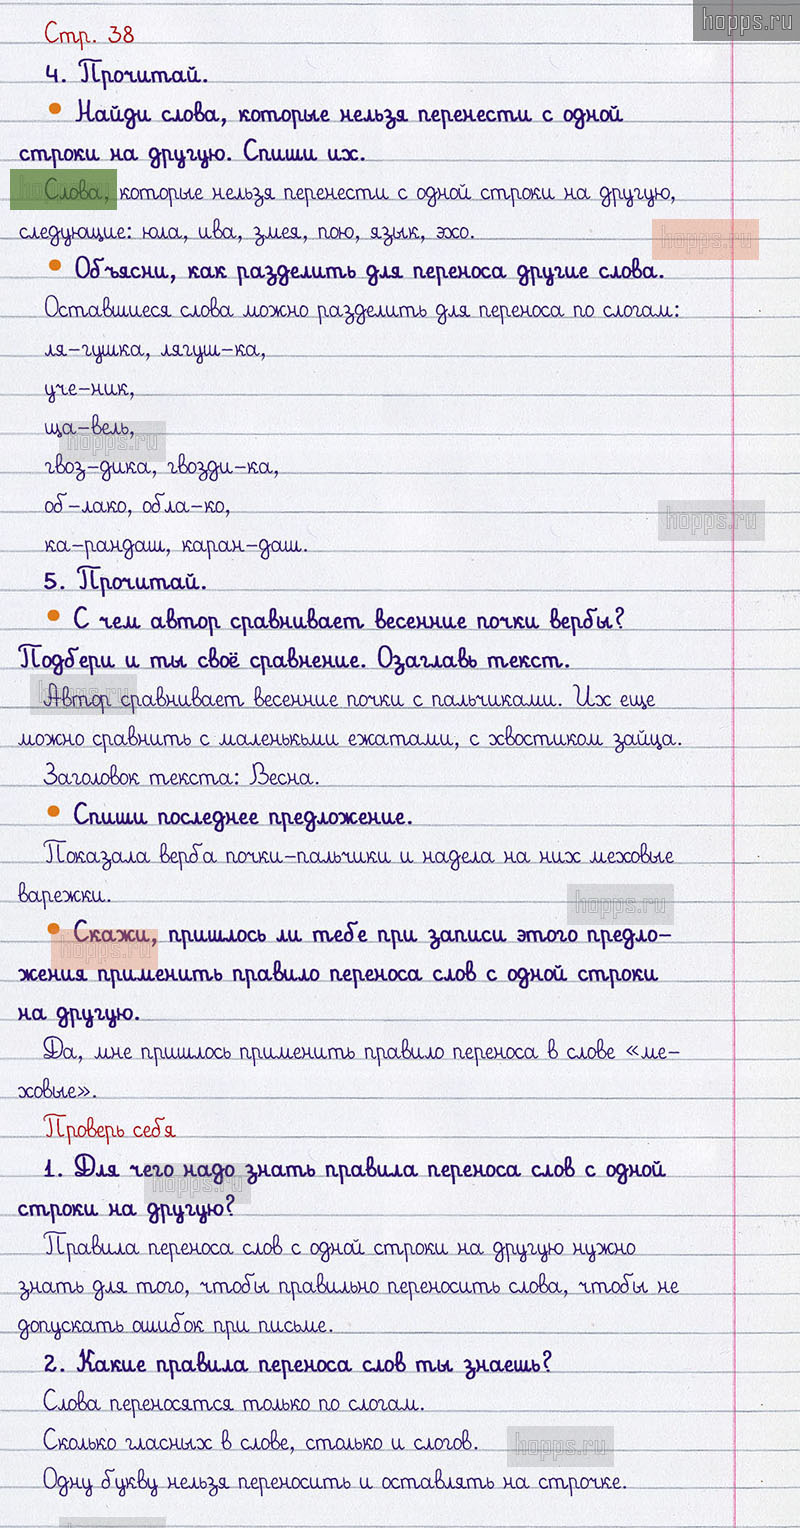 hopps.ru
Стр. 38
4. Прочитай.
• Найди слова, которые нельзя перенести с одной
строки на другую. Спиши их.
Слова, которые нельзя перенести с одной строки на другую,
следующие: юла, ива, змея, пою, язык, эхо.
hopps.ru
• Объясни, как разделить для переноса другие слова.
Оставшиеся слова можно разделить для переноса по слогам:
ля-гушка, лягуш-ка,
уче-ник,
ща-вель,
hopps.ru
гвоз-дика, гвозди-ка,
об-лако, обла-ко,
hopps.ru
ка-рандаш, каран-даш.
5. Прочитай.
• С чем автор сравнивает весенние почки вербы?
Подбери и ты своё сравнение. Озаглавь текст.
hopps.ru
Автор сравнивает весенние почки с пальчиками. Их еще
можно сравнить с маленькьми ежатами, с хвостиком зайца.
Заголовок текста: Весна.
• Спиши последнее предложение.
Показала верба почки-пальчики и надела на них меховые
варежки.
hopps.ru
• Скажи, пришлось ли тебе при записи этого предло-
hopps.ru
жения применить правило переноса слов с одной строки
на другую.
Да, мне пришлось применить правило переноса в слове «ме-
ховые».
Проверь себя
1. Для чего надо знать правила переноса слов с одной
hopps.ru
строки на другую?
Правила переноса слов с одной строки на другую нужно
знать для того, чтобы правильно переносить слова, чтобы не
допускать ошибок при письме.
2. Какие правила переноса слов ты знаешь?
Слова переносятся только по слогам.
Сколько гласных в слове, столько и слогов.
hopps.ru
Одну букву нельзя переносить и оставлять на строчке.